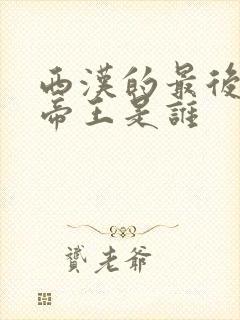 西漢的最後
帝王是誰
贊老爺